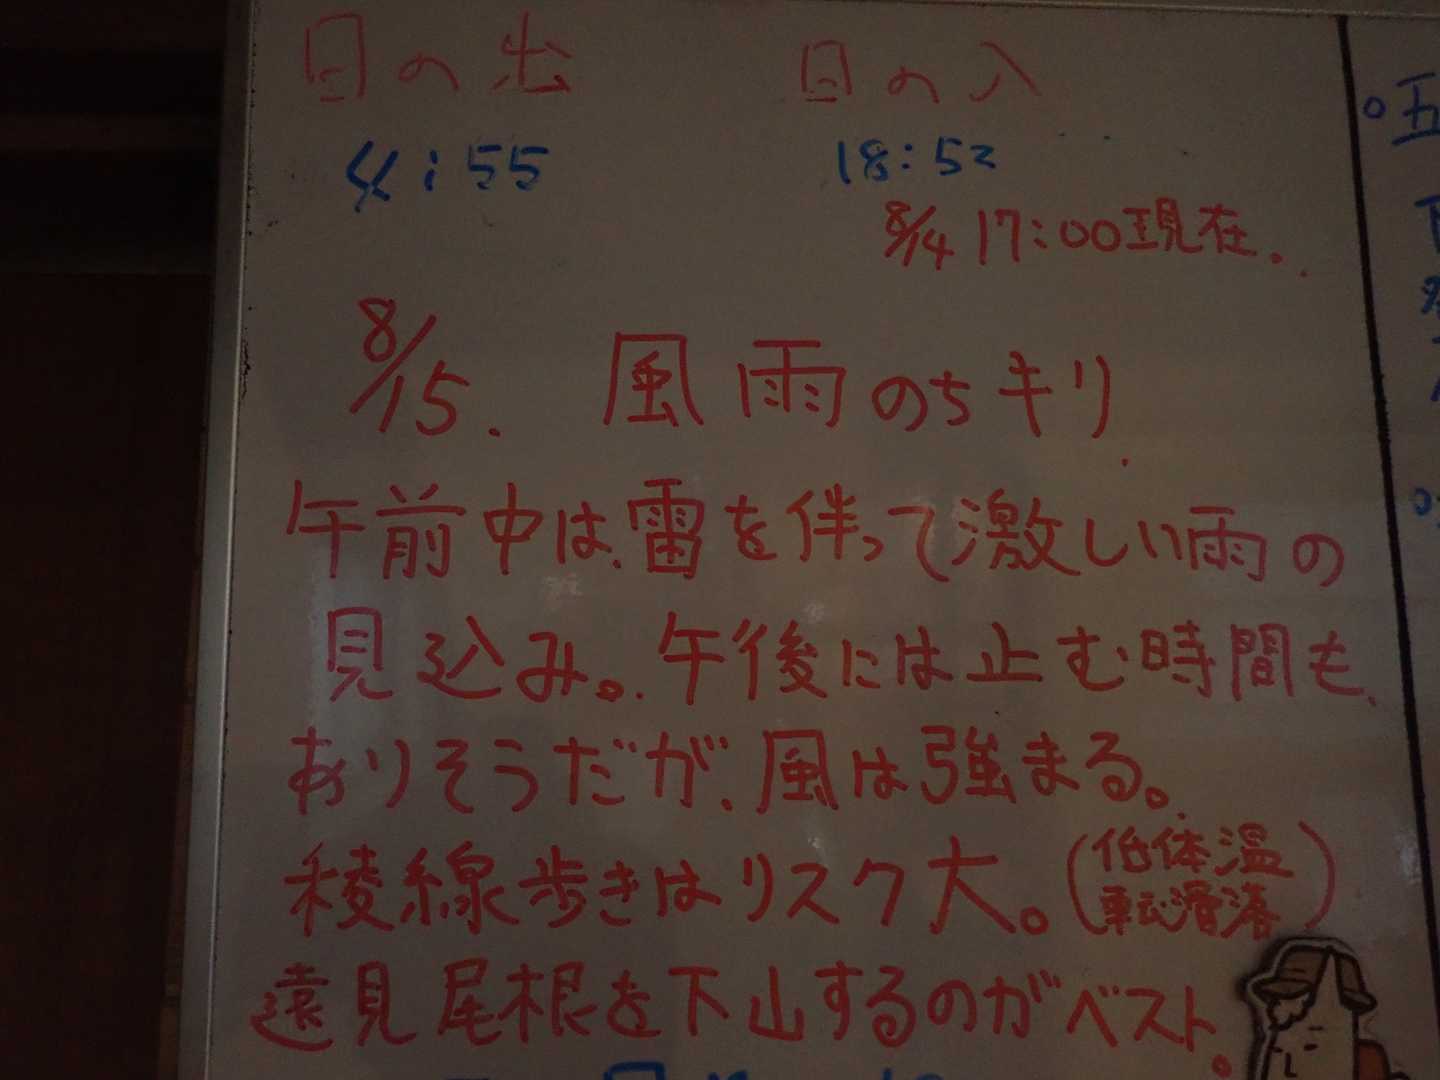 日の出 日の入
4:55 18:52
8/14 17:00現在.
8/15. 風雨のちキリ
午前中は雷を伴って激しい雨の
見込み。午後には止む時間も
ありそうだが、風は強まる。
稜線歩きはリスク大。(低体温
転滑落)
遠見尾根を下山するのがベスト。
○五